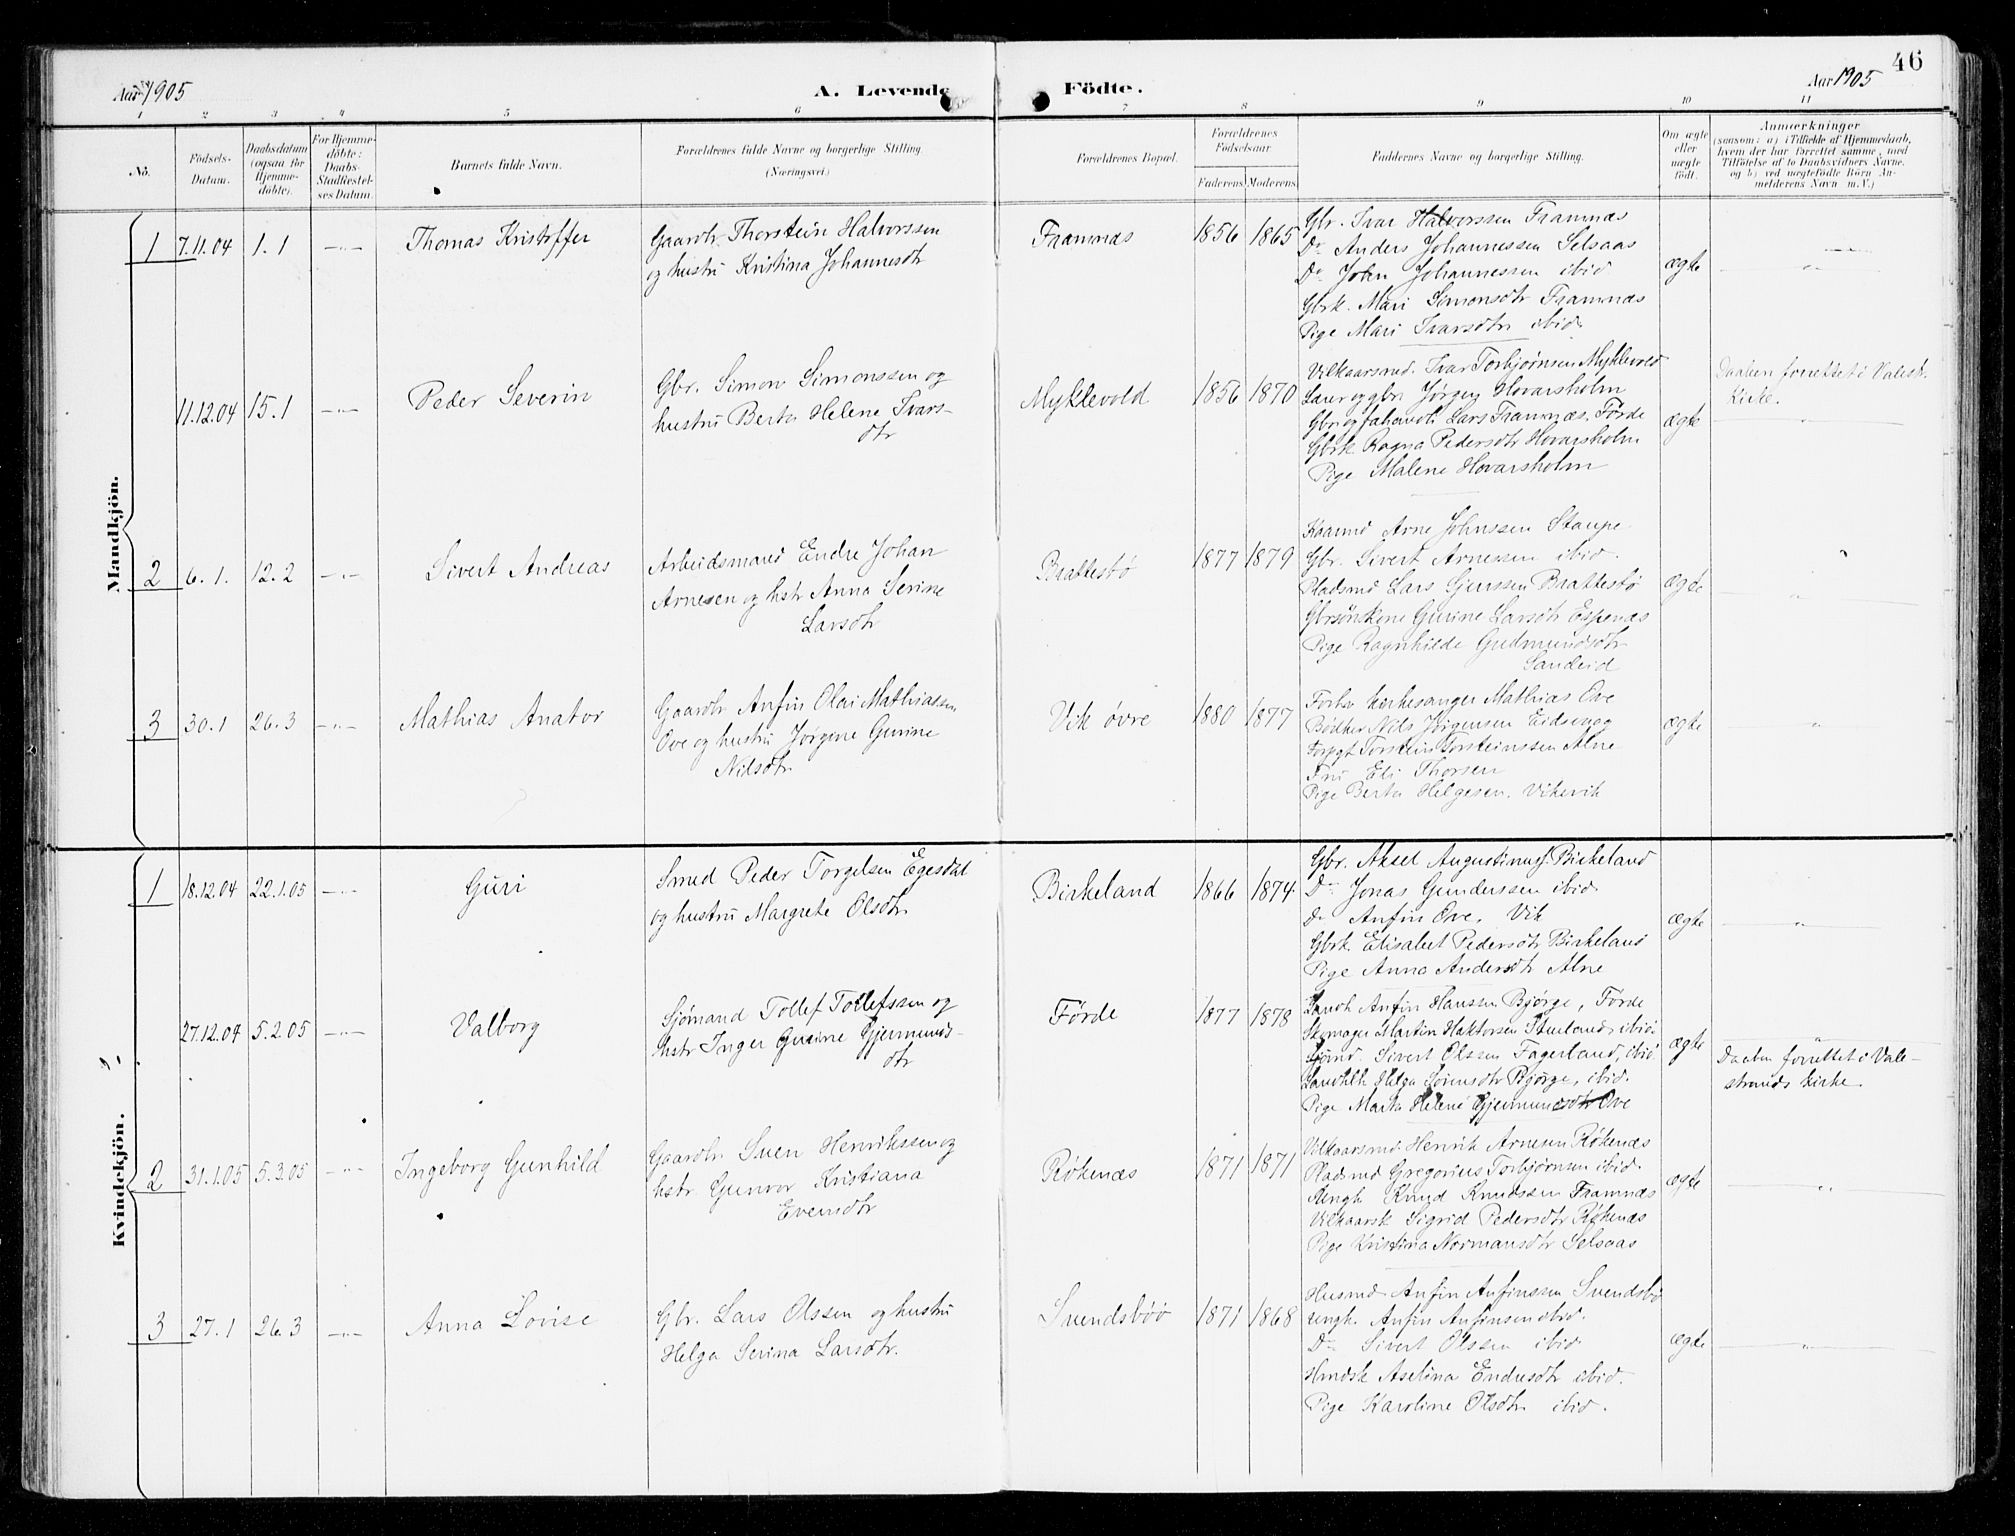 46
Aar 1905
A. Levende
Födte.
Aar 1905
1 2 3 4 5 6 7 8 9 10 11
No.
Födsels-
Datum.
Daabsdatum
(ogsaa for
Hjemme-
döbte).
For Hjemme-
döbte:
Daabs-
Stadfæstel-
ses Datum.
Barnets fulde Navn.
Forældrenes fulde Navne og borgerlige Stilling.
(Næringsvei.)
Forældrenes Bopæl.
Forældrenes
Födselsaar.
Faderens
Moderens
Faddernes Navne og borgerlige Stilling.
Om ægte
eller
uægte
födt.
Anmærkninger
(saasom: a) i Tilfælde af Hjemmedaab,
hvem der har forrettet samme, med
Tilföielse af to Daabsvidners Navne.
og b) ved uægtefödte Börn An-
melderens Navn m. V.)
Mandkjön.
1 7.11.04 1.1 —"— Thomas Kristoffer
Gaardbr. Thorstein Halvorssen
og hustru Kristina Johannesdtr
Framnæs 1856 1865
Gbr. Ivar Halvorssen Framnæs
Do Anders Johannessen Selsaas
Do John Johannessen ibid
Gbrk. Mari Simonsdtr Framnæs
Pige Mari Ivarsdtr ibid
ægte —"—
11.12.04 15.1 —"— Peder Severin
Gbr. Simon Simonssen og
hustru Berta Helene Ivars-
dtr
Myklevold 1856 1870
Vilkaarsmd. Ivar Torbjørnsen Myklevold
Lærer og gbr Jørgen Hovarsholm
Gbr og fahandl Lars Framnæs, Førde
Gbrk Ragna Pedersdtr Hovarsholm
Pige Malene Hovarsholm
ægte
Daaben forrettet i Valest.
Kirke.
—"—
2 6.1. 12.2 —"— Sivert Andreas
Arbeidsmand Endre Johan
Arnesen og hstr Anna Serine
Larsdtr
Brattestø 1877 1879
Kaarmd Arne Johnssen Staupe
Gbr. Sivert Arnessen ibid.
Pladsmd Lars Sjurssen Brattestø
Gbrsønskone Gurine Larsdtr Espenæs
Pige Ragnhilde Gudmundsdtr
Sandeid
ægte —"—
3 30.1 26.3 —"— Mathias Anator
Gaardbr Anfin Olai Mathiassen
Ove og hustru Jørgine Gurine
Nilsdtr
Vik øvre 1880 1877
Forhv kirkesanger Mathias Ove
Bødker Nils Jørgensen Eidsvaag
Forpgt Torstein Torsteinssen Alne
Fru Eli Thorsen
Pige Berta Helgesen. Vikevik
ægte "
Kvindekjön.
1 18.12.04 22.1.05 —"— Guri
Smed Peder Torgelsen Egesdal
og hustru Margrete Olsdtr
Birkeland 1866 1874
Gbr. Aksel Augustinus. Birkeland
Do Jonas Gunderssen ibid
Do Anfin Ove. Vik
Gbrk. Elisabet Pedersdtr Birkeland
Pige Anna Andersdtr Alne
ægte —"—
27.12.04 5.2.05 —"— Valborg
Sjømand Tollef Tollefssen og
hstr Inger Gurine Gjermunds-
dtr
Førde 1877 1878
Landh Anfin Hanssen Bjørge, Førde
Skomager Martin Haktorsen Stuelands ibid
Sjømd. Sivert Olssen Fagerland, ibid
Landhlk Helga Sørensdtr Bjørge, ibid.
Pige Marta Helene Gjermundsdtr Ove
ægte
Daaben forrettet i Vale-
strands kirke.
2 31.1.05 5.3.05 —"— Ingeborg Gunhild
Gaardbr Sven Henrikssen og
hstr. Gunvor Kristiana
Evensdtr
Røkenæs 1871 1871
Vilkaarsmd. Henrik Arnesen Røkenæs
Pladsmd Gregorius Torbjørnsen ibid.
Ungk. Knud Knudssen Framnæs
Vilkaarsk Sigrid Pedersdtr Røkenæs
Pige Kristina Normansdtr Selsaas
ægte —"—
3 27.1 26.3 —"— Anna Lovise
Gbr. Lars Olssen og hustru
Helga Serina Larsdtr.
Svendsbøø 1871 1868
Husmd Anfin Anfinssen Svendsbø
Ungk. Anfin Anfinsen ibid.
Do Sivert Olssen ibid
Hmdsk Aselina Endresdtr ibid.
Pige Karoline Olsdtr. ibid.
ægte —"—